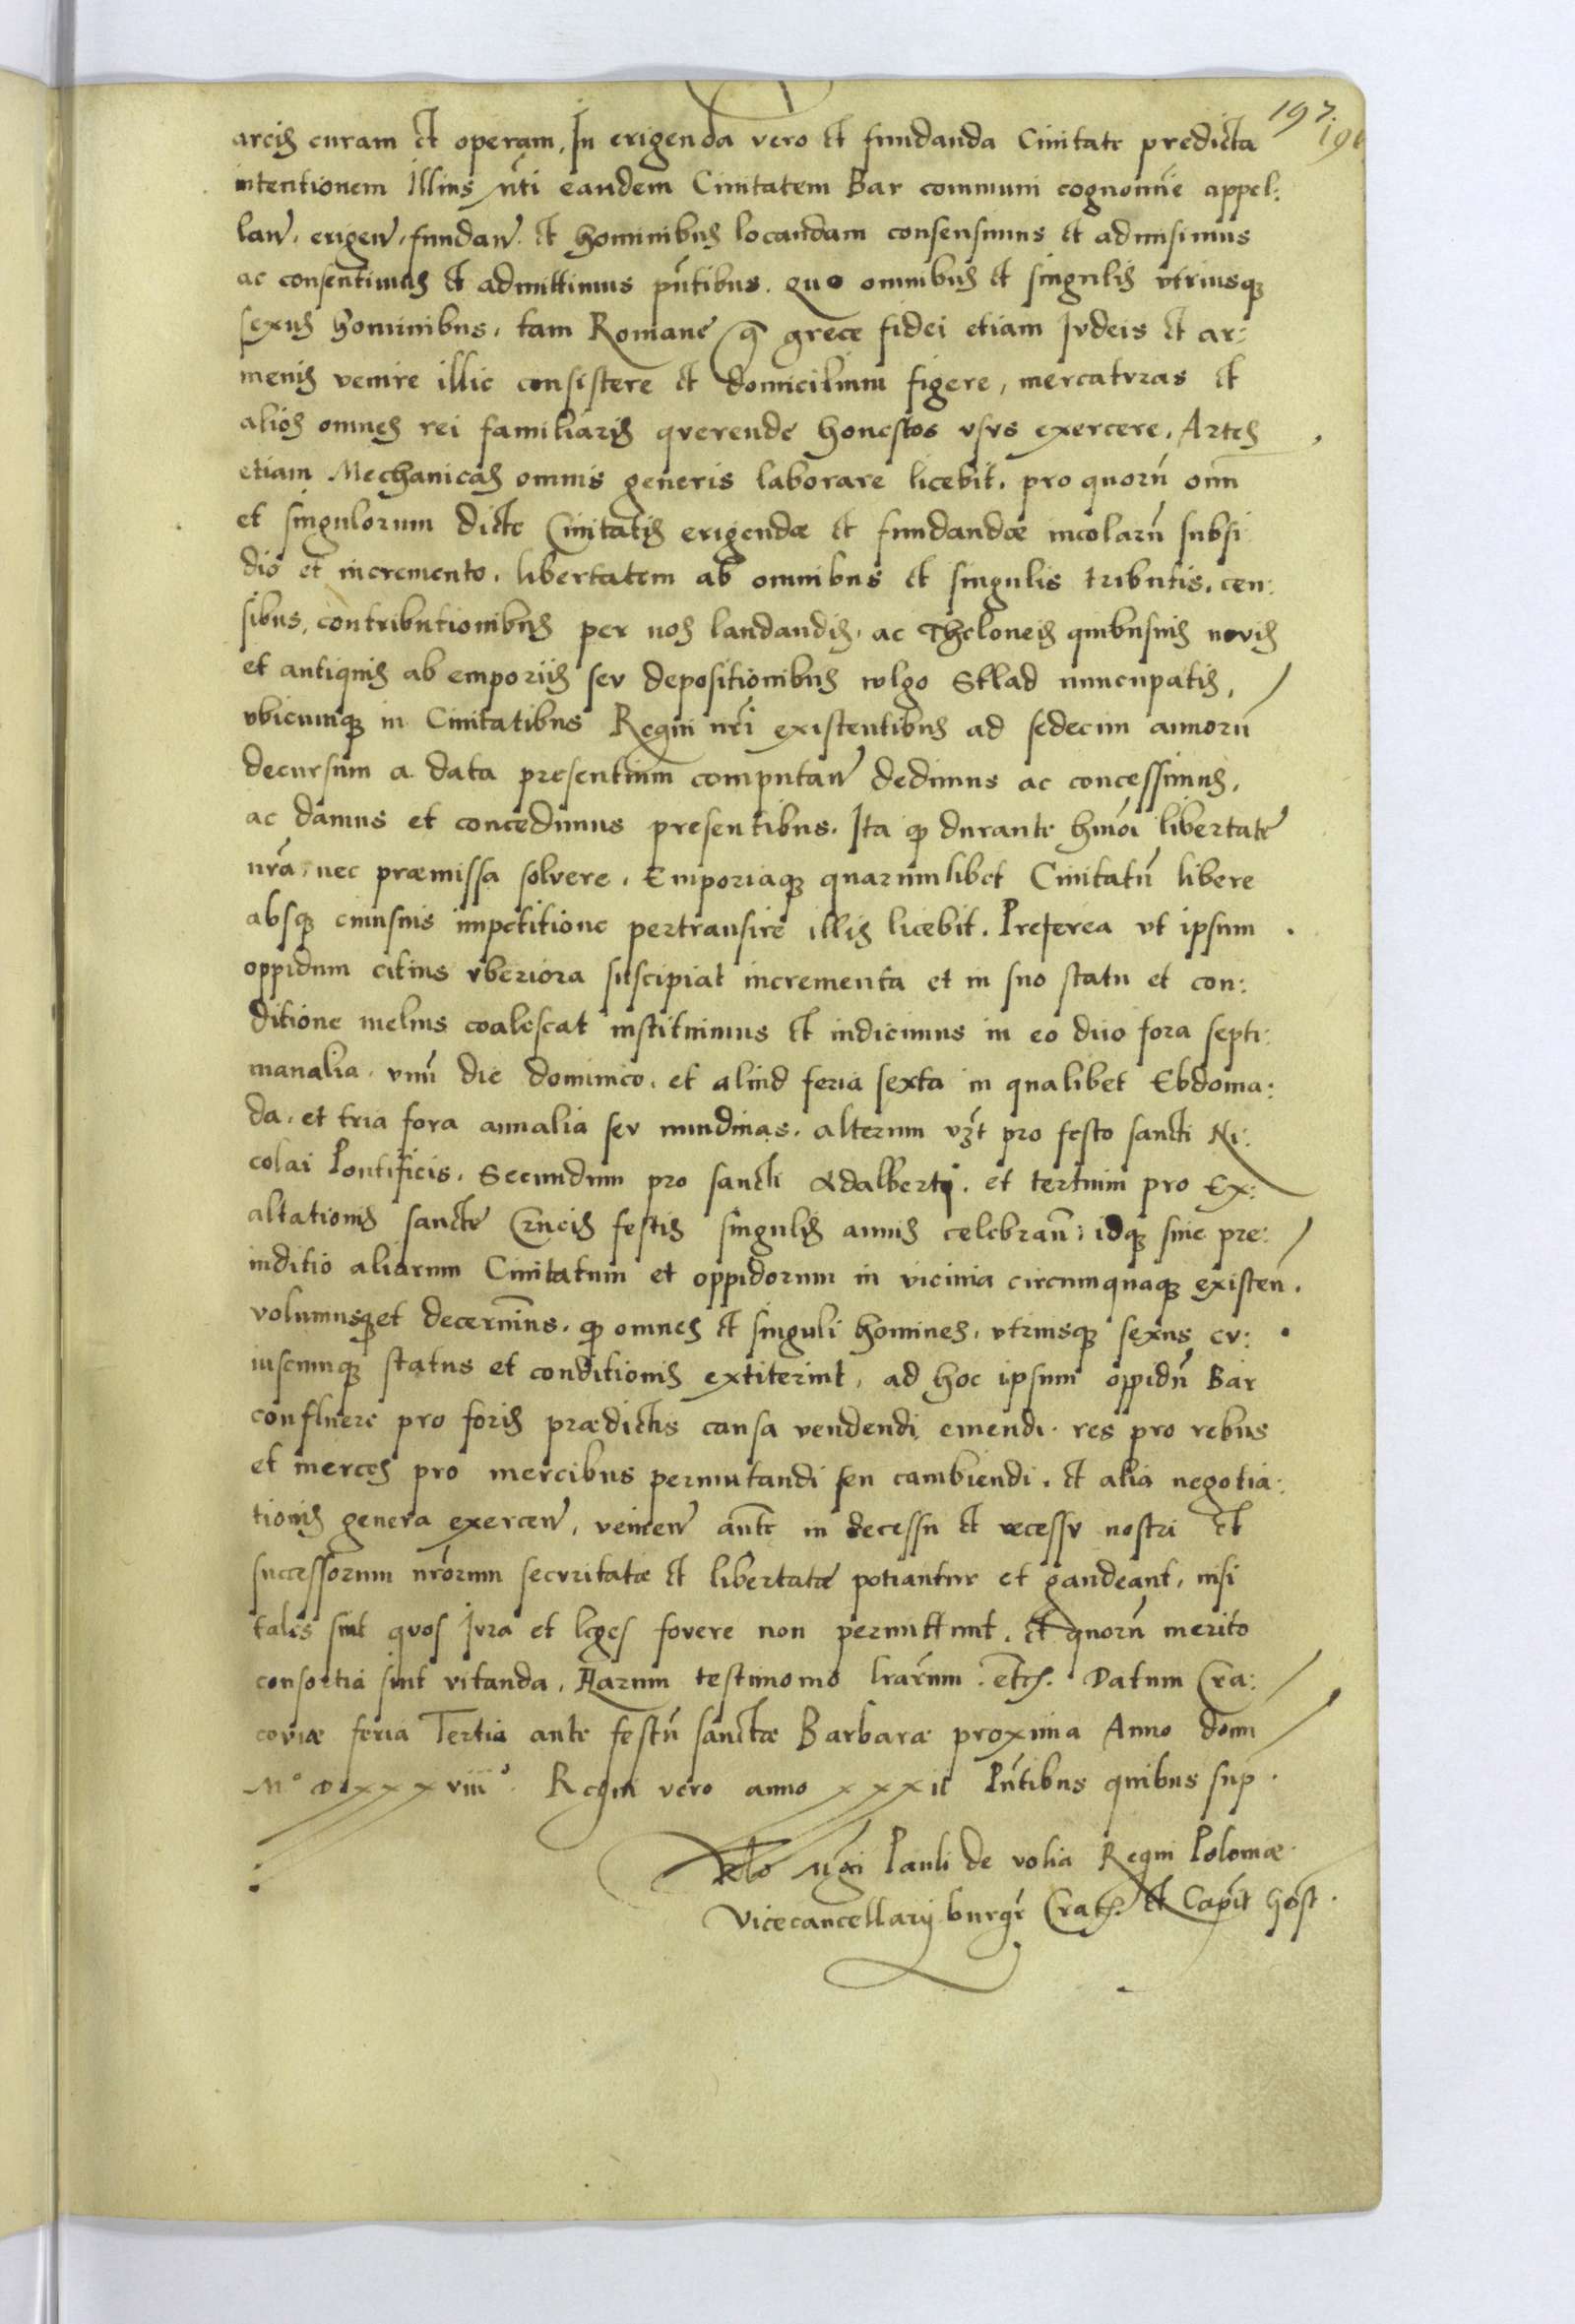 197
196
arcis curam et operam, In erigenda vero et fundanda Civitate predicta
intentionem Illius nr̃i eandem Civitatem Bar communi cognomĩe appel:
lan̄. erigen̄. fundan̄. et hominibus locandam consensimus et admisimus
ac consentimus et admittimus pñtibus. quo omnibus et singulis vtriusqȝ
sexus hominibus, tam Romane q̃ grece fidei etiam Iudeis et ar:
menis venire illic consistere et domicilium figere, mercaturas et
alios omnes rei familiaris querende honestos vsus exercere. Artes
etiam Mechanicas omnis generis laborare licebit. pro quorũ om̃
et singulorum dicte Civitatis erigendæ et fundandæ incolarũ subsi
dio et incremento. libertatem ab omnibus et singulis tributis. cen:
sibus, contributionibus per nos laudandis, ac Theloneis quibusuis novis
et antiquis ab emporiis seu depositionibus wlgo Stlad nuncupatis,
vbicumqȝ in Civitatibus Regni nr̃i existentibus ad sedecim annorũ
decursum a data presentium computan̄ dedimus ac concessimus,
ac damus et concedimus presentibus. Ita qȝ durante hm̃oi libertate
nr̃a, nec præmissa solvere, Emporiaqȝ quarumlibet Civitatũ libere
absqȝ cuiusuis impetitione pertransire illis licebit. Preterea vt ipsum
oppidum citius vberiora suscipiat incrementa et in suo statu et con:
ditione melius coalescat instituimus et indicimus in eo duo fora septi:
manalia. vnũ die dominico. et aliud feria sexta in qualibet Ebdoma:
da. et tria fora annalia seu nundinas. alterum vȝt pro festo sancti Ni:
colai Pontificis. Secundum pro sancti Adalberti. et tertium pro Ex:
altationis sancte Crucis festis singulis annis celebran̄. idqȝ sine pre:
iuditio aliarum Civitatum et oppidorum in vicinia circumquaqȝ existen̄.
volumusqȝ et decernim̃us. qȝ omnes et singuli homines, vtriusqȝ sexus cu:
iuscumqȝ status et conditionis extiterint, ad hoc ipsum oppidũ Bar
confluere pro foris prædictis causa vendendi, emendi. res pro rebus
et merces pro mercibus permutandi seu cambiendi. et alia negotia:
tionis genera exercen̄, venien̄ aut̃e in decessu et recessu nostri et
successorum nr̃orum securitate et libertate potiantur et gaudeant, nisi
tales sint quos Iura et leges fovere non permittunt. et quorũ merito
consortia sint vitanda, Harum testimonio lr̃arum. etc̃. Datum Cra:
coviæ feria Tertia ante festũ sanctæ Barbaræ proxima Anno dom̃
M° D xxxviii°. Regni vero anno xxxii Pñtibus quibus sup.
Rel̃o M̃gci Pauli de volia Regni Poloniæ
Vicecancellarij burgr̃ Crac̃. et Capit̃ host.